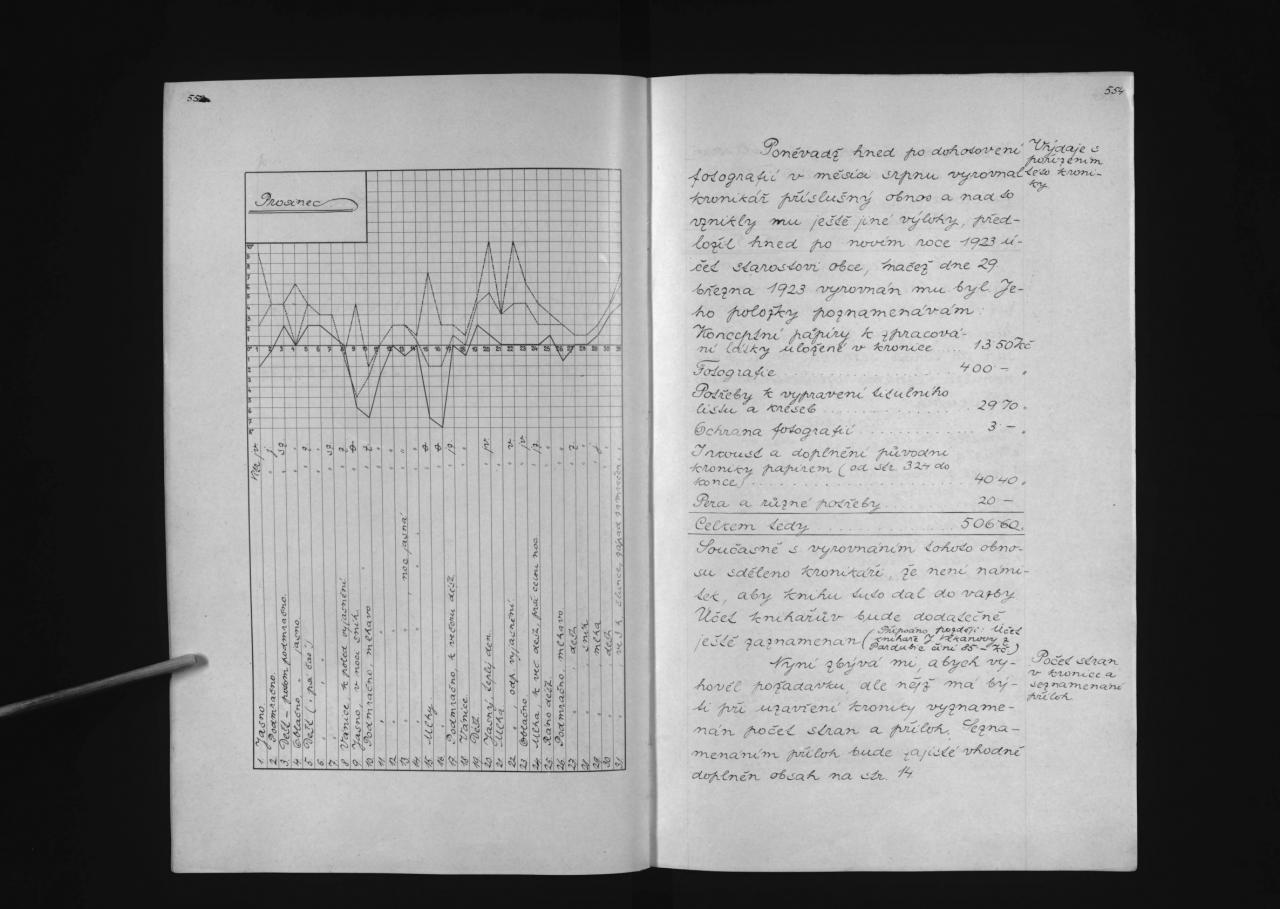 Prosinec
1. Jasno.
2. Podmračno.
3. Déšť – potom podmračno.
4. Oblačno, jasno.
5. Déšť
6.
7.
8. Vánice, k poled. vyjasnění
9. Jasno, v noci sníh.
10. Podmračno, mlhavo
11.
12.
13. noc jasná
14.
15. Mlhy.
16.
17. Podmračno, k večeru déšť
18. Vánice.
19. Déšť
20. Jasný, teplý den.
21. Mlha.
22. odp. vyjasnění
23. Oblačno.
24. Mlha, k več. déšť, celou noc
25. Ráno déšť
26. Podmračno, mlhavo.
27. déšť
28. sníh
29. mlha
30. déšť
31.
554
Poněvadž hned po dohotovení
fotografií v měsíci srpnu vyrovnal
kronikář příslušný obnos a nad to
vznikly mu ještě jiné výlohy, před-
ložil hned po novém roce 1923 ú-
čet starostovi obce, načež dne 29
března 1923 vyrovnán mu byl. Je-
ho položky poznamenávám:
Konceptní papíry k zpracová-
ní látky uložené v kronice .... 13·50 Kč
Fotografie .... 400 – „
Potřeby k vypravení titulního
listu a kreseb .... 29·70 „
Ochrana fotografií .... 3 – „
Inkoust a doplnění původní
kroniky papírem (od str. 324 do
konce) .... 40·40 „
Pera a různé potřeby .... 20 –
Celkem tedy .... 506·60
Současně s vyrovnáním tohoto obno-
su sděleno kronikáři, že není námi-
tek, aby knihu tuto dal do vazby
Účet knihařův bude dodatečně
ještě zaznamenán (Připsáno později: Účet
knihaře z
Pardubic činí 85 – Kč.)
Nyní zbývá mi, abych vy-
hověl požadavku, dle nějž má bý-
ti při uzavření kroniky vyzname-
nán počet stran a příloh. Sezna-
menáním příloh bude zajisté vhodně
doplněn obsah na str. 14
Výdaje s
pořízením
této kroni-
ky
Počet stran
v kronice a
seznamenání
příloh